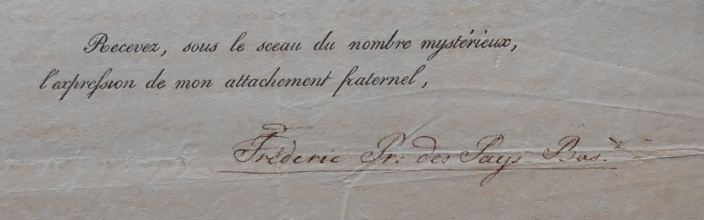 Recevez, sous le sceau du nombre mystérieux,
l'expression de mon attachement fraternel,
Fréderic Pr: des Pays Bas.